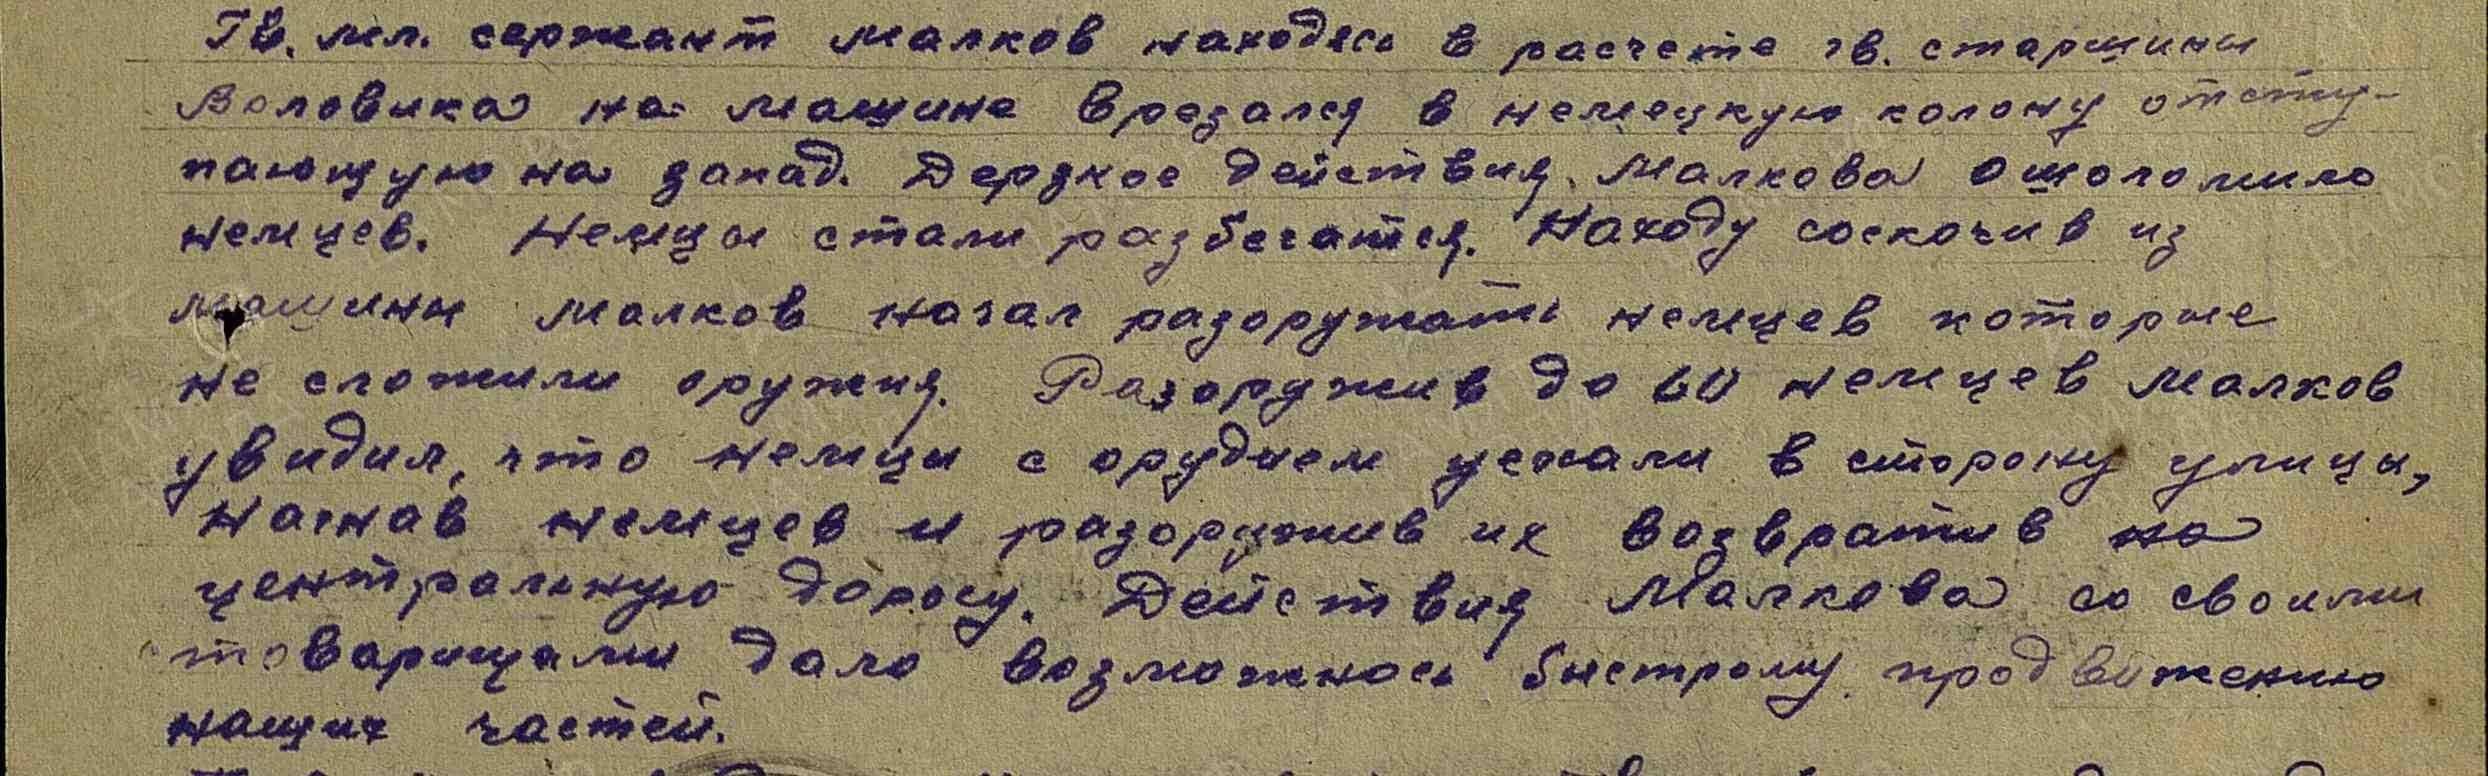 Гв. мл. сержант Малков находясь в расчете гв. старшины
Воловика на машине врезался в немецкую колону отсту-
пающую на запад. Дерзкое действия Малкова ошоломило
немцев. Немцы стали разбегатся. Находу соскочив из
машины Малков начал разоружать немцев которые
не сложили оружия. Разоружив до 60 немцев Малков
увидил, что немцы с орудием уехали в сторону улицы,
нагнав немцев и разоружив их возвратив на
центральную дорогу. Действия Малкова со своими
товарищами дало возможнось быстрому продвежению
наших частей.